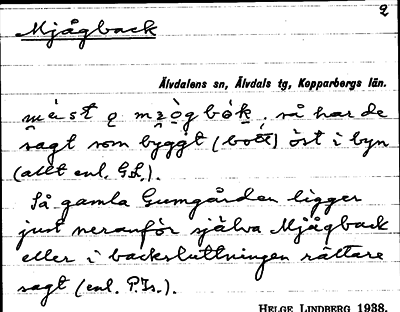 2
Mjågback
Älvdalens sn, Älvdals tg, Kopparbergs län.
så har de
sagt som byggt (bott) öst i byn
(allt enl. G.L.).
Så gamla Gumgården ligger
just neranför själva Mjågback
eller i backsluttningen rättare
sagt (enl. P.Is.).
HELGE LINDBERG 1938.